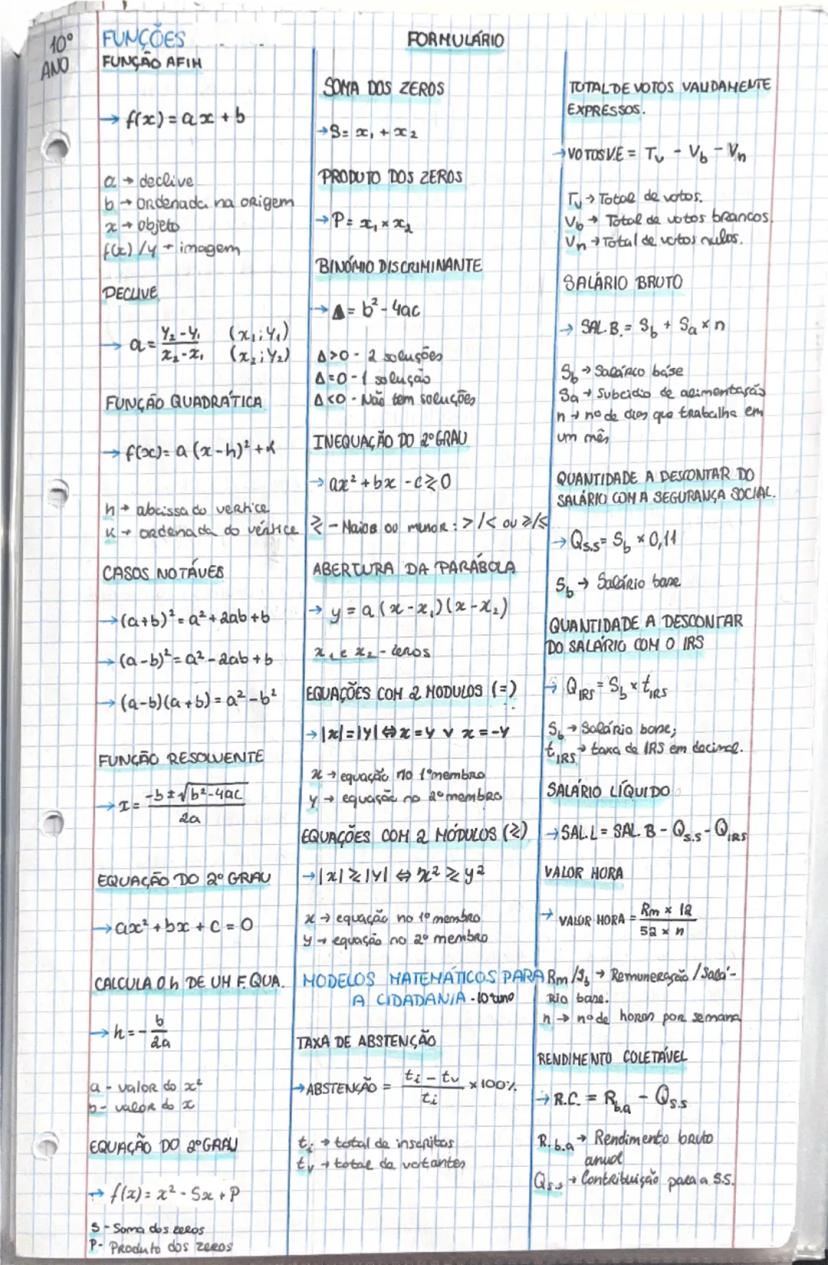 10º
ANO
FORMULÁRIO
FUNÇÕES
FUNÇÃO AFIM
→ f(x) = ax + b
a → declive
b → ordenada na origem
x → objeto
f(x) / y → imagem
DECLIVE
→ a = (y₂ - y₁)/(x₂ - x₁) (x₁; y₁)
(x₂; y₂)
FUNÇÃO QUADRÁTICA
→ f(x) = a (x - h)² + k
h → abcissa do vertice
k → ordenada do vértice
CASOS NOTÁVES
→ (a+b)² = a² + 2ab + b
→ (a-b)² = a² - 2ab + b
→ (a-b)(a+b) = a² - b²
FUNÇÃO RESOLVENTE
→ x = (-b ± √(b² - 4ac))/2a
EQUAÇÃO DO 2º GRAU
→ ax² + bx + c = 0
CALCULA O h DE UM F. QUA.
→ h = - b/2a
a - valor do x²
b - valor do x
EQUAÇÃO DO 2º GRAU
→ f(x) = x² - Sx + P
S - Soma dos zeros
P - Produto dos zeros
SOMA DOS ZEROS
→ S = x₁ + x₂
PRODUTO DOS ZEROS
→ P = x₁ × x₂
BINÓMIO DISCRIMINANTE
→ Δ = b² - 4ac
Δ > 0 - 2 soluções
Δ = 0 - 1 solução
Δ < 0 - Não tem soluções
INEQUAÇÃO DO 2º GRAU
→ ax² + bx - c ≷ 0
≷ - Maior ou menor : > / < ou ≥ / ≤
ABERTURA DA PARÁBOLA
→ y = a (x - x₁)(x - x₂)
x₁ e x₂ - zeros
EQUAÇÕES COM 2 MODULOS (=)
→ |x| = |y| ⇔ x = y ∨ x = -y
x → equação no 1º membro
y → equação no 2º membro
EQUAÇÕES COM 2 MÓDULOS (≷)
→ |x| ≷ |y| ⇔ x² ≷ y²
x → equação no 1º membro
y → equação no 2º membro
MODELOS MATEMÁTICOS PARA
A CIDADANIA - 10º ano
TAXA DE ABSTENÇÃO
→ ABSTENÇÃO = (tᵢ - tᵥ)/tᵢ × 100%
tᵢ → total de inscritos
tᵥ → total de votantes
TOTAL DE VOTOS VALIDAMENTE
EXPRESSOS.
→ VOTOSV.E = Tᵥ - V_b - Vₙ
Tᵥ → Total de votos.
V_b → Total de votos brancos.
Vₙ → Total de votos nulos.
SALÁRIO BRUTO
→ SAL.B. = S_b + Sₐ × n
S_b → Salário base
Sa → Subcidio de alimentação
n → nº de dias que trabalha em
um mês
QUANTIDADE A DESCONTAR DO
SALÁRIO COM A SEGURANÇA SOCIAL.
→ Q_S.S = S_b × 0,11
S_b → Salário base
QUANTIDADE A DESCONTAR
DO SALÁRIO COM O IRS
→ Q_IRS = S_b × t_IRS
S_b → Salário base;
t_IRS → taxa de IRS em decimal.
SALÁRIO LÍQUIDO
→ SAL.L = SAL.B - Q_S.S - Q_IRS
VALOR HORA
→ VALOR HORA = (Rm × 12)/(52 × n)
Rm /S_b → Remuneração / Salá-
rio base.
n → nº de horas por semana
RENDIMENTO COLETÁVEL
→ R.C. = R_b.a - Q_S.S
R.b.a → Rendimento bruto
anual
Q_S.S → Contribuição para a S.S.